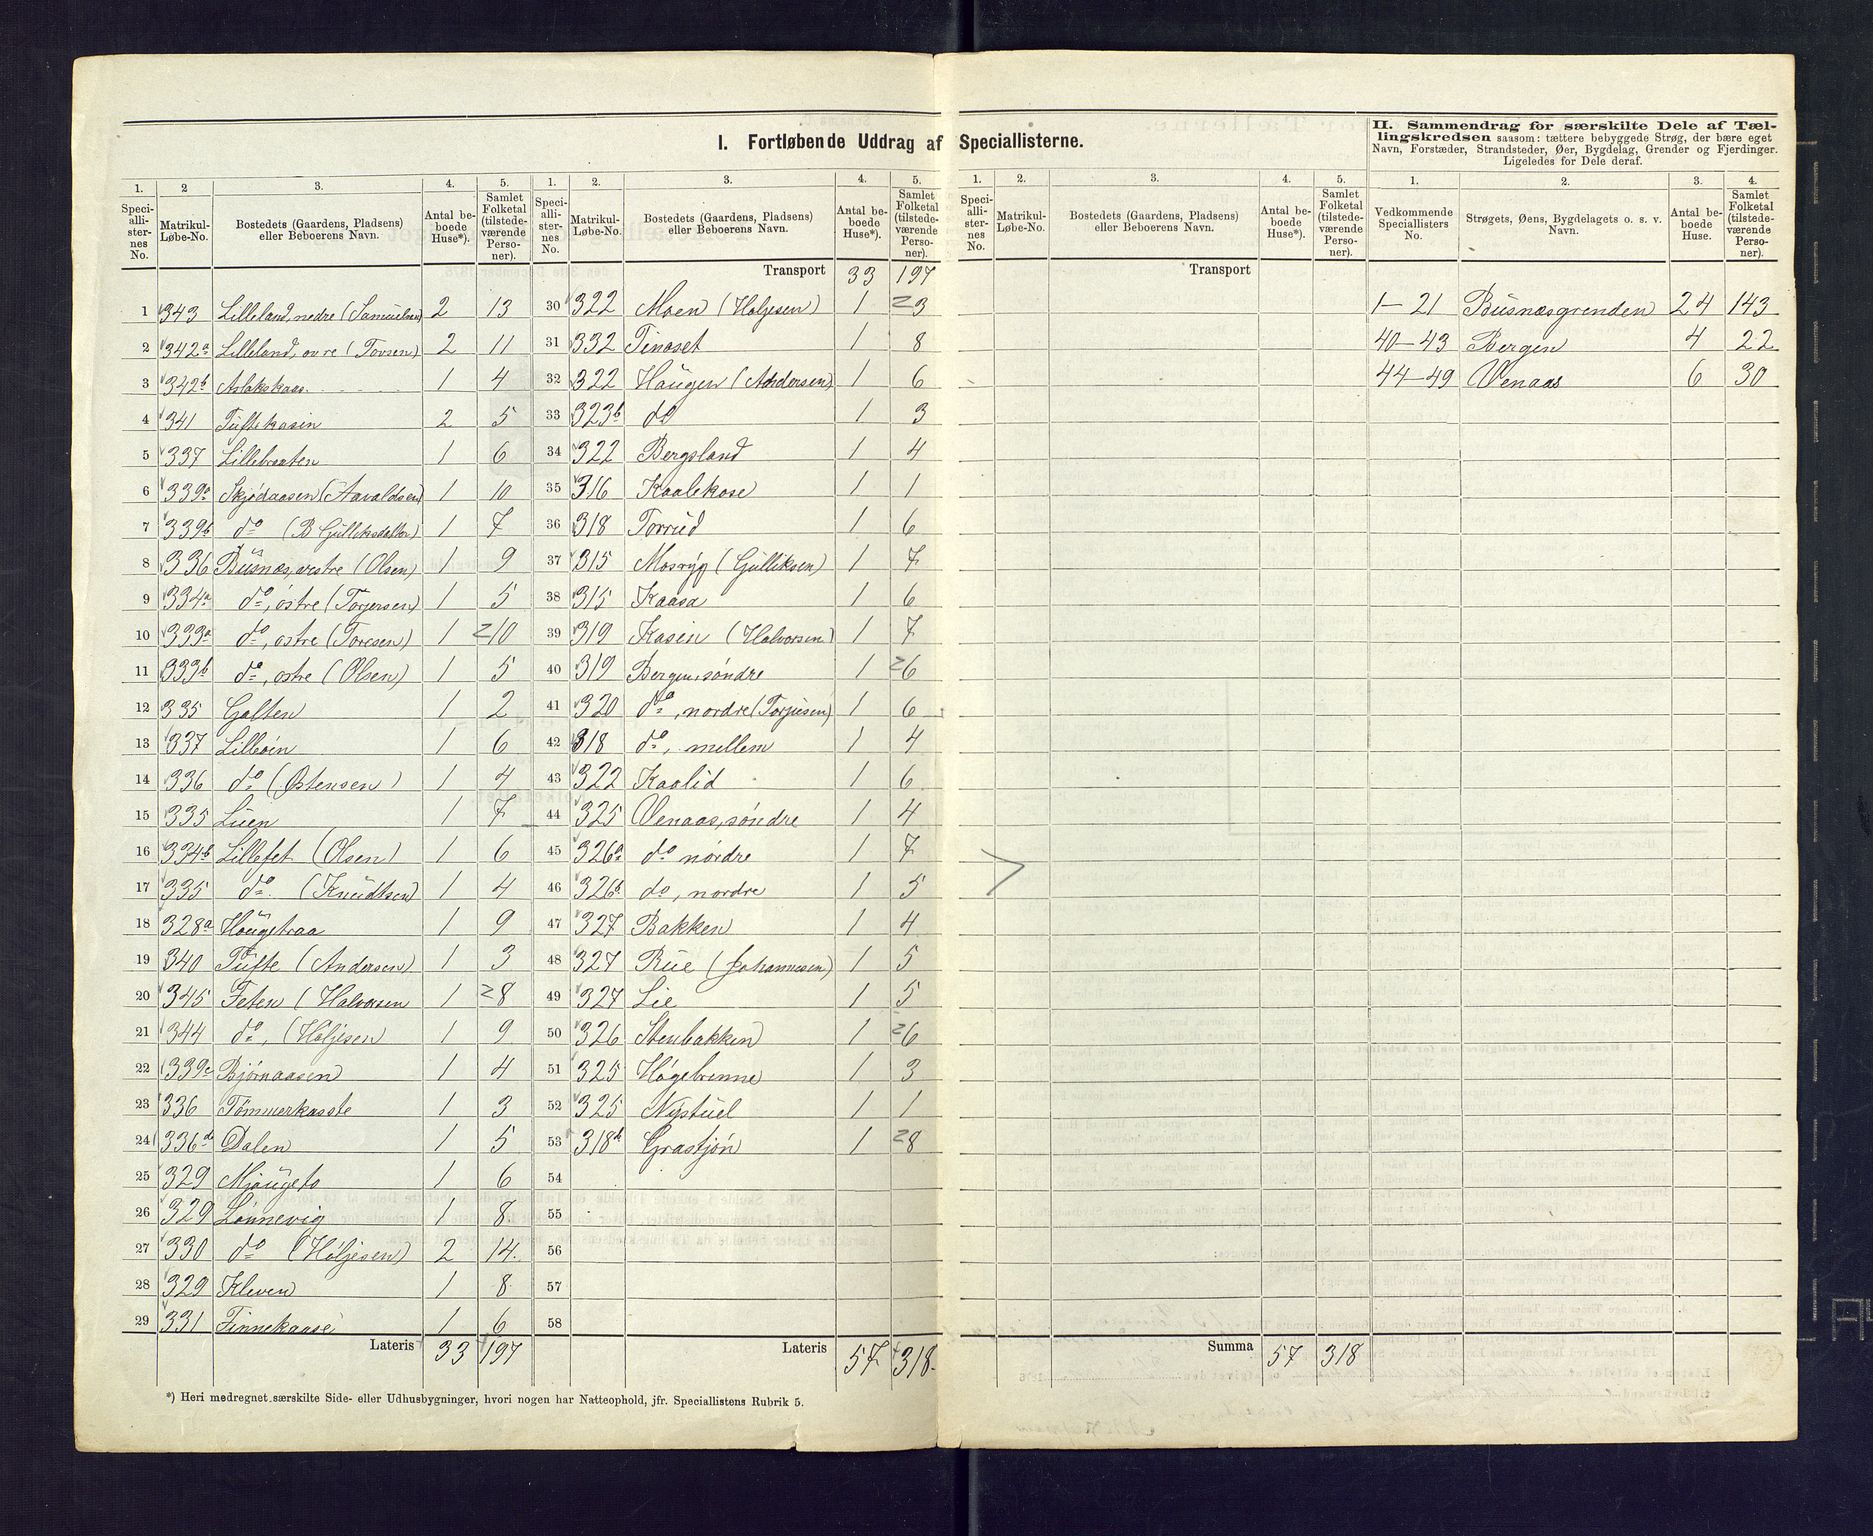 I. Fortløbende Uddrag af Speciallisterne.
II. Sammendrag for særskilte Dele af Tællingskredsen saasom: tættere bebyggede Strøg, der bære eget
Navn, Forstæder, Strandsteder, Øer, Bygdelag, Grender og Fjerdinger.
Ligeledes for Dele deraf.
1. 2 3. 4. 5. 1. 2. 3. 4. 5. 1. 2. 3. 4. 5. 1. 2. 3. 4.
Speciallisternes No. Matrikul-Løbe-No. Bostedets (Gaardens, Pladsens) eller Beboerens Navn. Antal beboede Huse*). Samlet Folketal (tilstedeværende Personer).
Speciallisternes No. Matrikul-Løbe-No. Bostedets (Gaardens, Pladsens) eller Beboerens Navn. Antal beboede Huse*). Samlet Folketal (tilstedeværende Personer).
Speciallisternes No. Matrikul-Løbe-No. Bostedets (Gaardens, Pladsens) eller Beboerens Navn. Antal beboede Huse*). Samlet Folketal (tilstedeværende Personer).
Vedkommende Speciallisters No. Strøgets, Øens, Bygdelagets o. s. v. Navn. Antal beboede Huse. Samlet Folketal (tilstedeværende Personer).
1 343 Lilleland, nedre (Samuelsen) 2 13
2 342a Lilleland, øvre (Tovsen) 2 11
3 342b Aslakskaas 1 4
4 341 Tuftekasin 2 5
5 337 Lillebraaten 1 6
6 339a Skjødaasen (Aavaldsen) 1 10
7 339b do (B Gulliksdatter) 1 7
8 336 Busnæs, vestre (Olsen) 1 9
9 334a do, østre (Torjersen) 1 5
10 333a do, østre (Toresen) 1 2 10
11 333b do, østre (Olsen) 1 5
12 335 Galten 1 2
13 337 Lilleøin 1 6
14 336 do (Østensen) 1 4
15 335 Luen 1 7
16 334b Lillefet (Olsen) 1 6
17 335 do (Knudtsen) 1 4
18 328a Haugetraa 1 9
19 340 Tufte (Andersen) 1 3
20 345 Feten (Halvorsen 1 2 8
21 344 do, (Holjesen) 1 9
22 339c Bjørnaasen 1 4
23 336 Tømmerkaaste 1 3
24 336d Dalen 1 5
25 329 Mjaugeto 1 6
26 329 Lønnevig 1 8
27 330 do (Høljesen) 2 14
28 329 Kleven 1 8
29 331 Finnekaase 1 6
Lateris 33 197
Transport 33 197
30 322 Moen (Holjesen) 1 2 3
31 332 Tinoset 1 8
32 322 Haugen (Andersen) 1 6
33 323b do 1 3
34 322 Bergsland 1 4
35 316 Kaalekose 1 1
36 318 Torrud 1 6
37 315 Mosryg (Gulliksen) 1 7
38 315 Kaasa 1 6
39 319 Kasin (Halvorsen) 1 7
40 319 Bergen, søndre 1 2 6
41 320 do, nordre (Torjusen) 1 6
42 318 do, mellem 1 4
43 322 Kaalid 1 6
44 325 Venaas, søndre 1 4
45 326a do nordre 1 7
46 326b do, nordre 1 5
47 327 Bakken 1 4
48 327 Rue (Johannesen) 1 5
49 327 Lie 1 5
50 326 Stenbakken 1 2 6
51 325 Høgebrenne 1 3
52 325 Nystuel 1 1
53 318b Grastjøn 1 2 8
54
55
56
57
58
Lateris 57 318
Transport
Summa 57 318
1-21 Busnæsgrenden 24 143
40-43 Bergen 4 22
44-49 Venaas 6 30
*) Heri medregnet særskilte Side- eller Udhusbygninger, hvori nogen har Natteophold, jfr. Speciallistens Rubrik 5.